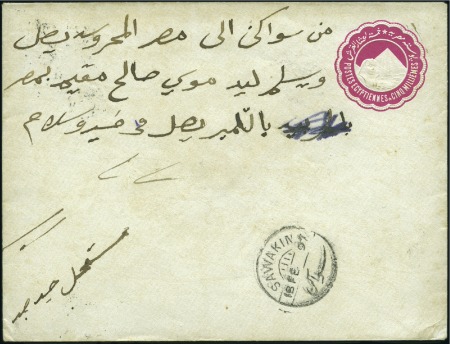 من سواكن الى مصر المحروسه يصل
ويسلم ليد موسي صالح مقيم بمصر
يصل في خير وسلام
مستعجل جدا جدا
POSTES EGYPTIENNES CINQ MILLIEMES
SAWAKIN
18 FE 97
سواكن